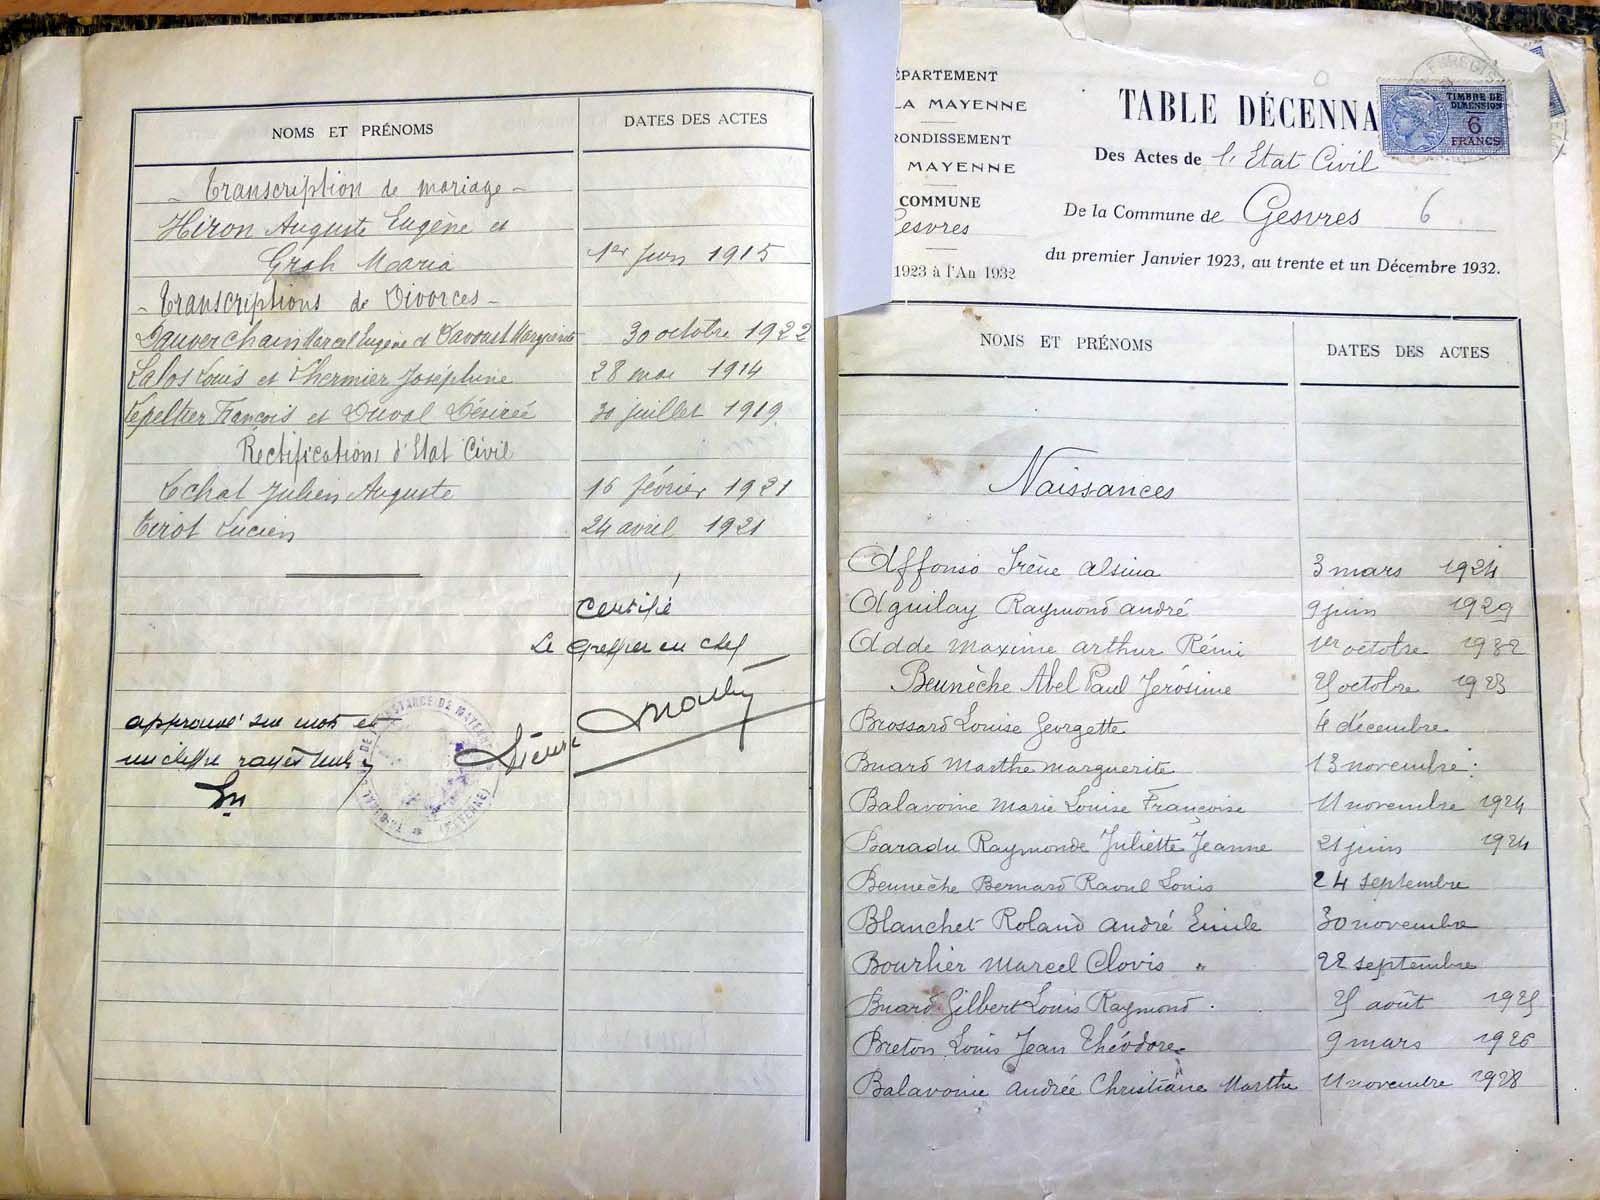 NOMS ET PRÉNOMS
DATES DES ACTES
- Transcription de mariage -
Hiron Auguste Eugène et
Grah Maria
1er juin 1915
- Transcriptions de Divorces -
Dauverchain Marcel Eugène et Davoust Marguerite
30 octobre 1922
Lalos Louis et Lhermier Joséphine
28 mai 1914
Lepeltier François et Duval Désirée
30 juillet 1919.
Rectifications d'Etat Civil
Lechat Julien Auguste
16 février 1921
Tirot Lucien
24 avril 1921
Certifié
Le Greffier en chef
approuvé un mot et
un chiffre rayés nuls
TRIBUNAL DE INSTANCE DE MAYENNE (MAYENNE)
ÉPARTEMENT
LA MAYENNE
RONDISSEMENT
MAYENNE
COMMUNE
Gesvres
1923 à l'An 1932
TABLE DÉCENNA
TIMBRE DE DIMENSION
6
FRANCS
ENREGIS
Des Actes de l'Etat Civil
De la Commune de Gesvres 6
du premier Janvier 1923, au trente et un Décembre 1932.
NOMS ET PRÉNOMS
DATES DES ACTES
Naissances
Affonso Irène Alsina 3 mars 1924
Aguilay Raymond André 9 juin 1929
Adde Maxime Arthur Rémi 1er octobre 1932
Beunèche Abel Paul Jérôsime 25 octobre 1923
Brossard Louise Georgette 4 décembre
Buard Marthe Marguerite 13 novembre
Balavoine Marie Louise Françoise 11 novembre 1924
Baradu Raymonde Juliette Jeanne 21 juin 1924
Beunèche Bernard Raoul Louis 24 septembre
Blanchet Roland André Emile 30 novembre
Bourlier Marcel Clovis 22 septembre
Buard Gilbert Louis Raymond 25 août 1925
Breton Louis Jean Théodore 9 mars 1926
Balavoine Andrée Christiane Marthe 11 novembre 1928